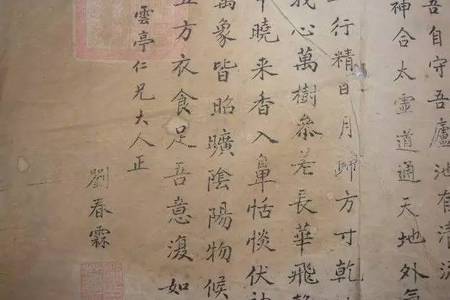 吾自守吾廬池有清流
神合太靈道通天地外氣
行精日月歸方寸乾
我心萬樹叅差長華飛
曉来香入鼻恬惔伏
萬象皆昭曠陰陽物候
五方衣食足吾意復如
雲亭仁兄大人正
劉春霖